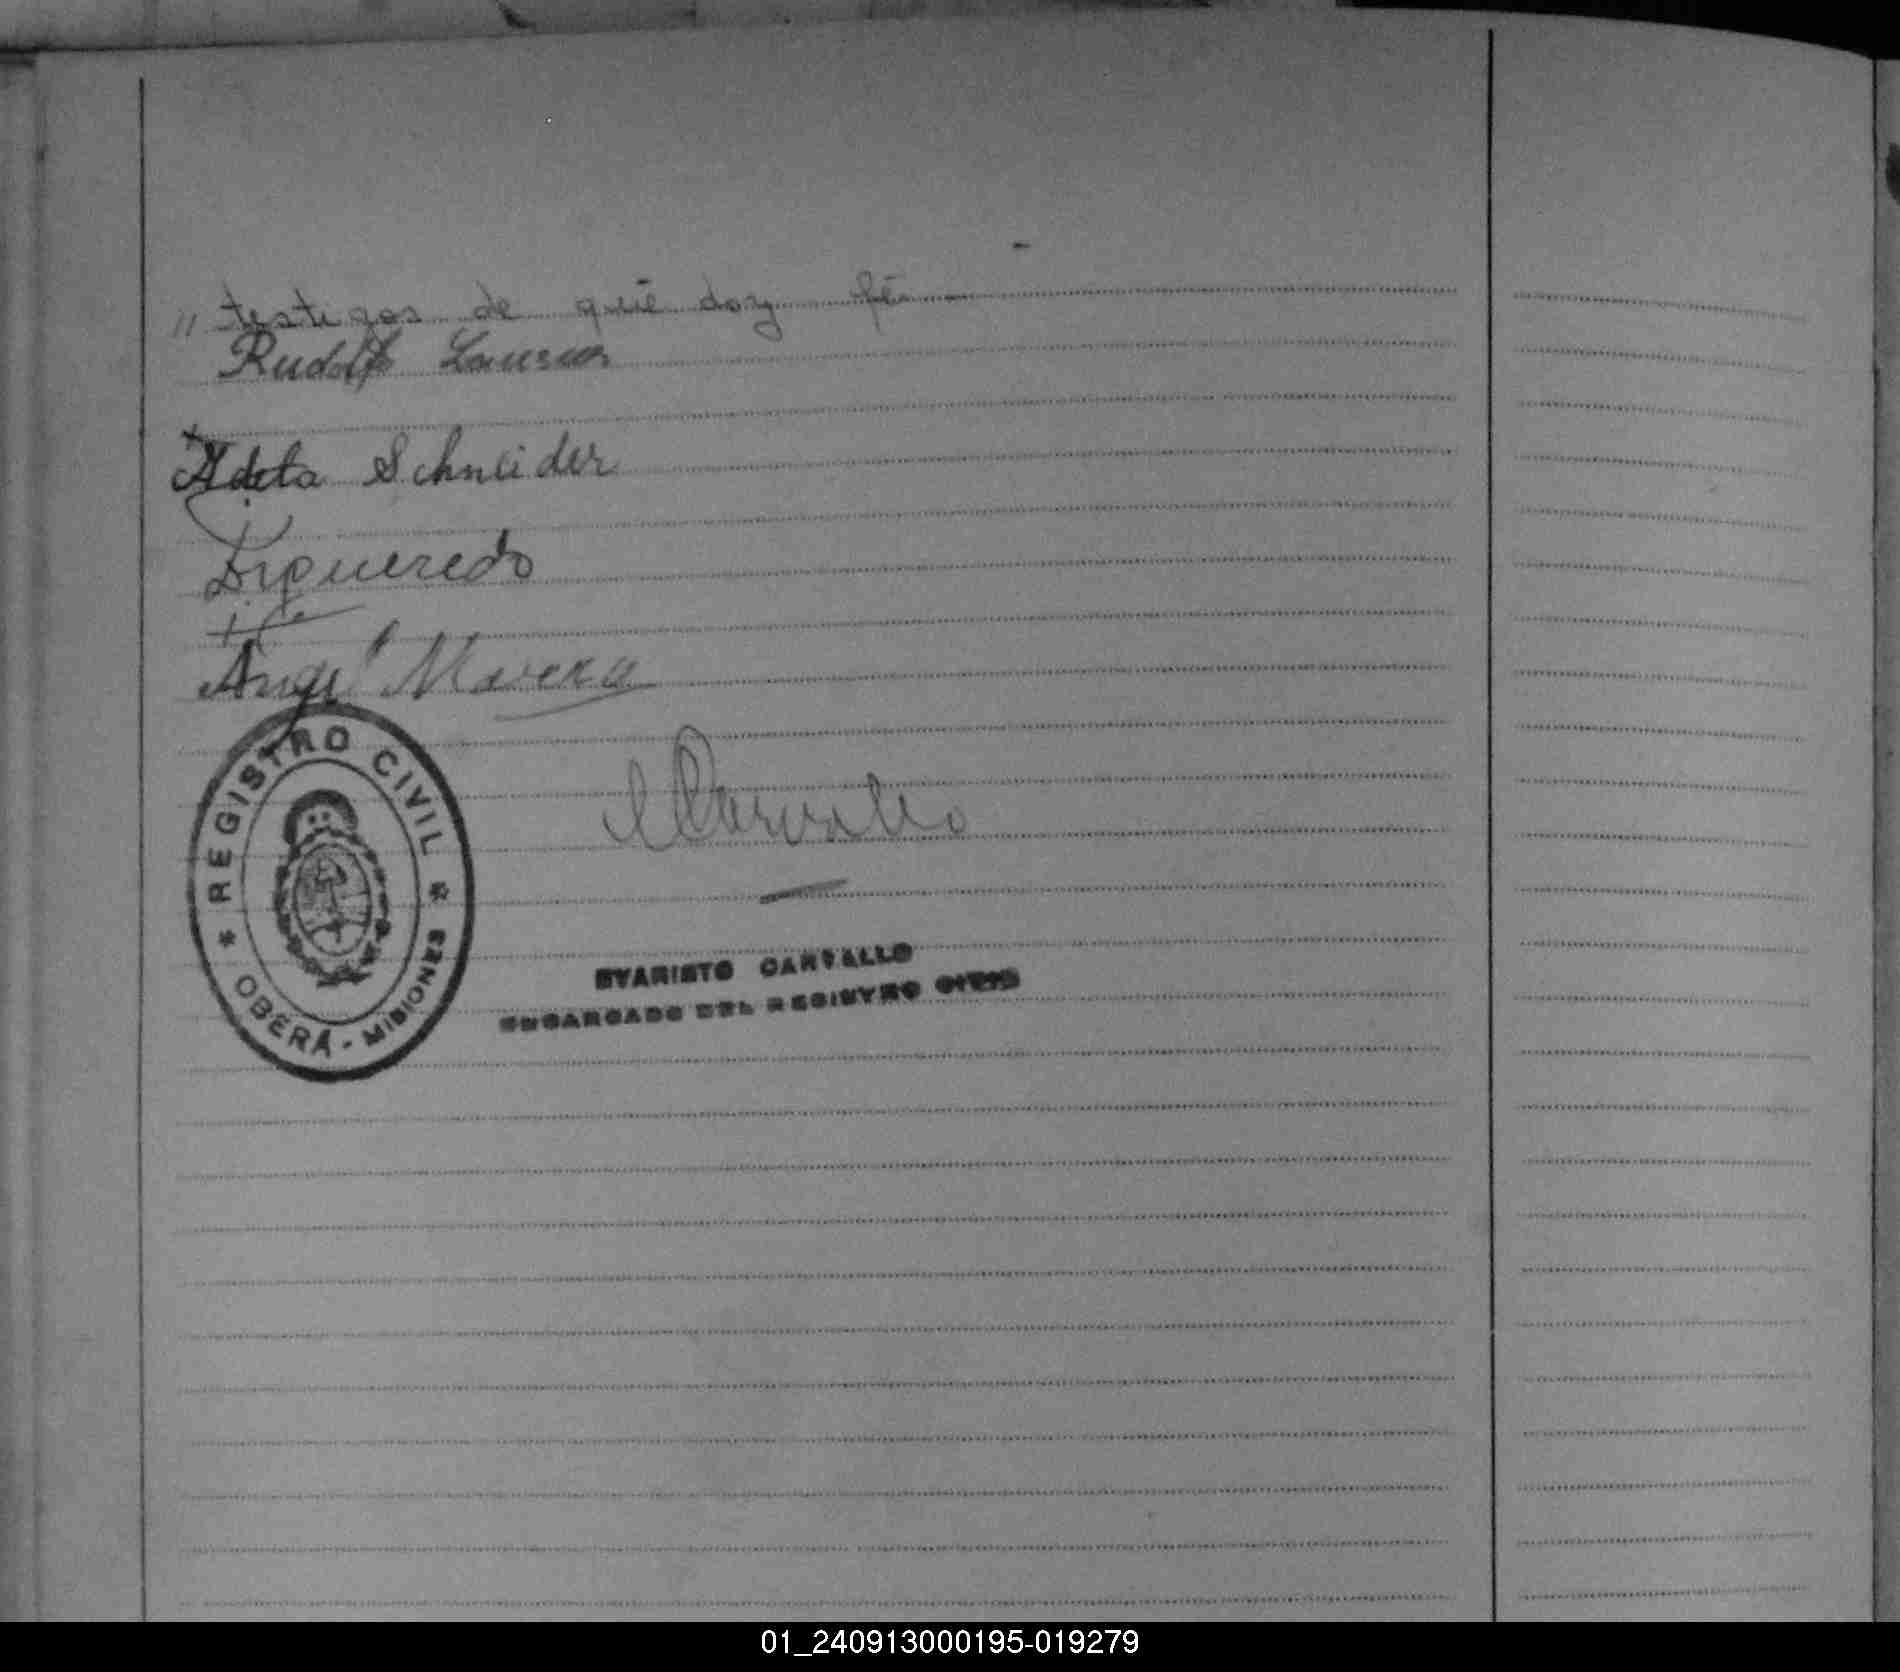 " testigos de que doy fé -
Rudolf
Adela Schneider
Figueredo
Angel
REGISTRO CIVIL
* OBERÁ - MISIONES *
E Carvallo
EVARISTO CARVALLO
ENCARGADO DEL REGISTRO CIVIL
01_240913000195-019279